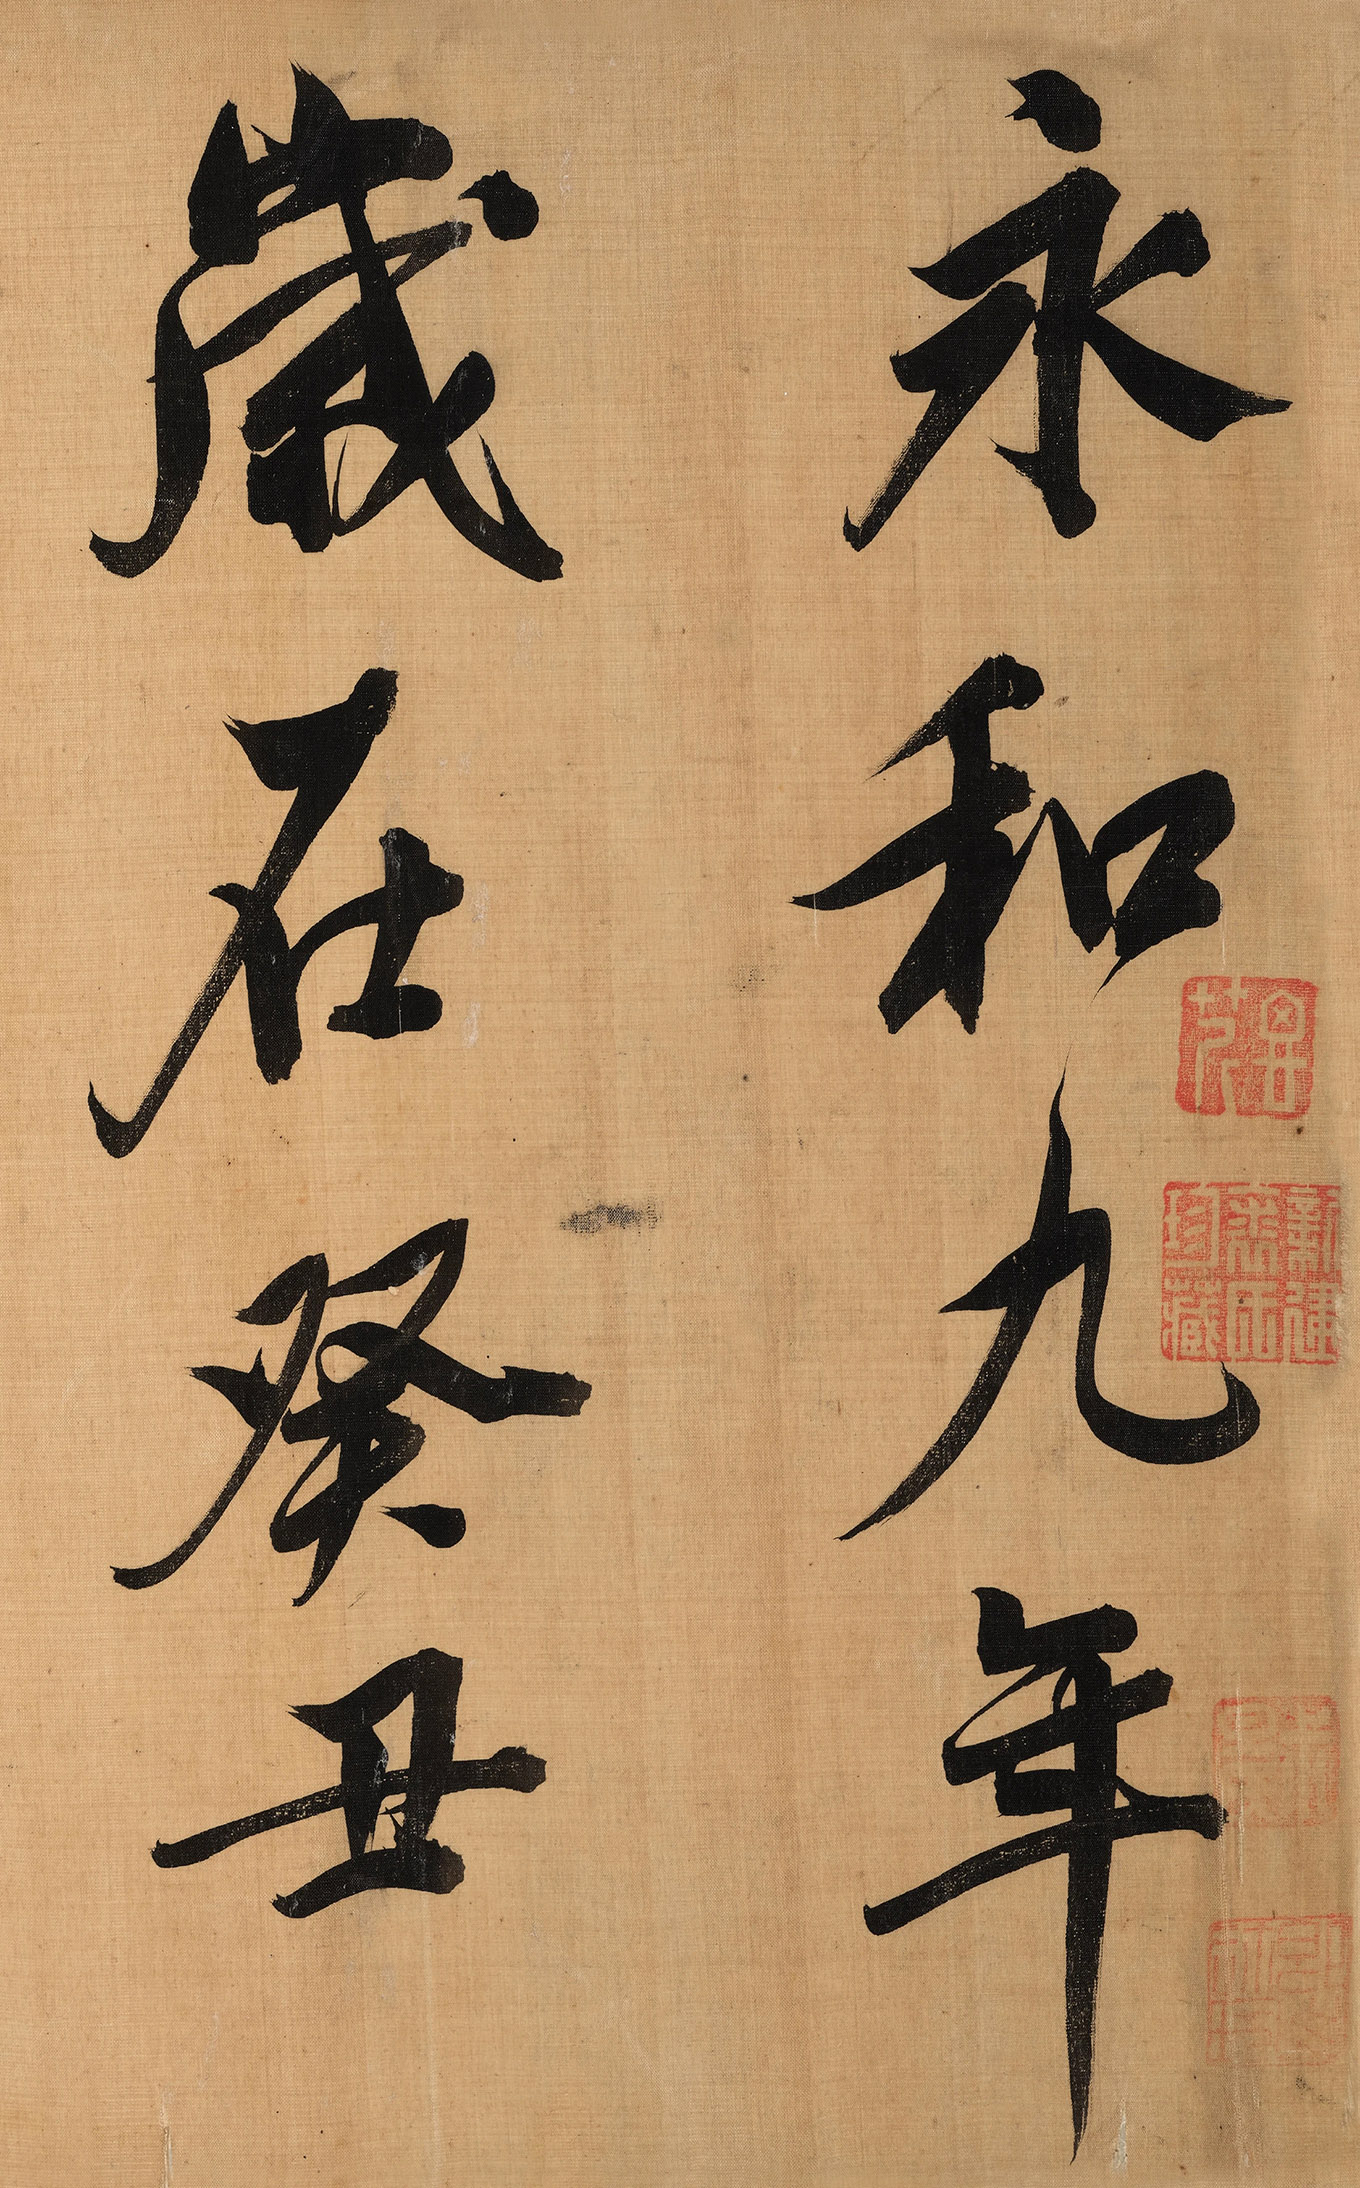 永和九年
歲在癸丑